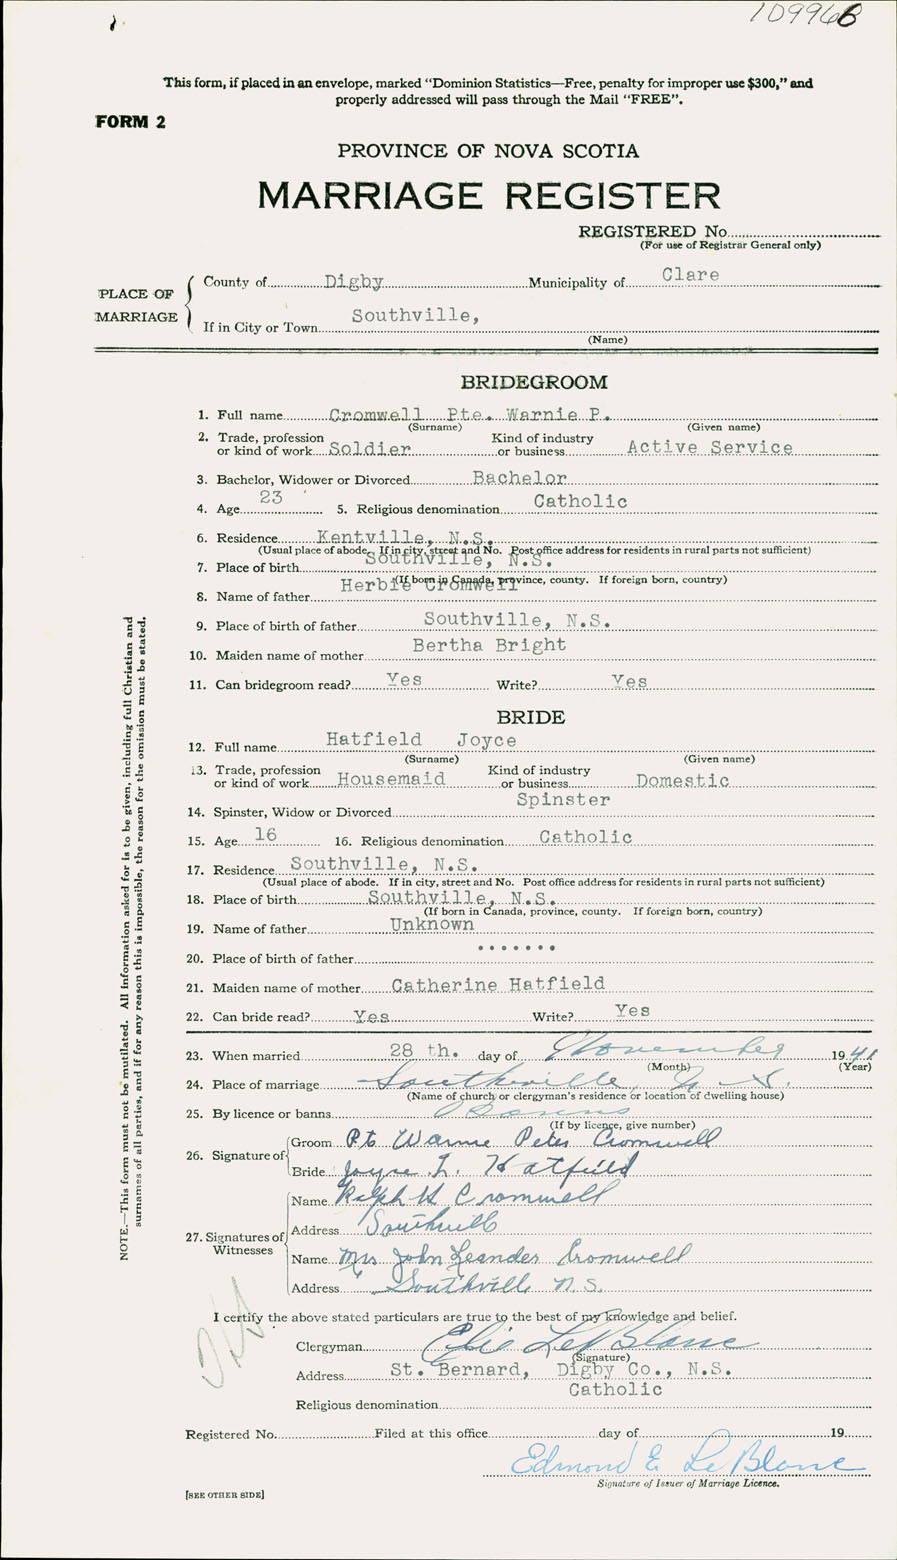 10996B
This form, if placed in an envelope, marked “Dominion Statistics—Free, penalty for improper use $300,” and
properly addressed will pass through the Mail “FREE”.
FORM 2
PROVINCE OF NOVA SCOTIA
MARRIAGE REGISTER
REGISTERED No.
(For use of Registrar General only)
PLACE OF MARRIAGE
County of Digby Municipality of Clare
If in City or Town Southville,
(Name)
BRIDEGROOM
1. Full name Cromwell Pte. Warnie P.
(Surname) (Given name)
2. Trade, profession Kind of industry
or kind of work Soldier or business Active Service
3. Bachelor, Widower or Divorced Bachelor
4. Age 23 5. Religious denomination Catholic
6. Residence Kentville, N.S.
(Usual place of abode. If in city, street and No. Post office address for residents in rural parts not sufficient)
7. Place of birth Southville, N.S.
(If born in Canada, province, county. If foreign born, country)
8. Name of father Herbie Cromwell
9. Place of birth of father Southville, N.S.
10. Maiden name of mother Bertha Bright
11. Can bridegroom read? Yes Write? Yes
BRIDE
12. Full name Hatfield Joyce
(Surname) (Given name)
13. Trade, profession Kind of industry
or kind of work Housemaid or business Domestic
14. Spinster, Widow or Divorced Spinster
15. Age 16 16. Religious denomination Catholic
17. Residence Southville, N.S.
(Usual place of abode. If in city, street and No. Post office address for residents in rural parts not sufficient)
18. Place of birth Southville, N.S.
(If born in Canada, province, county. If foreign born, country)
19. Name of father Unknown
20. Place of birth of father .......
21. Maiden name of mother Catherine Hatfield
22. Can bride read? Yes Write? Yes
23. When married 28 th. day of November 1941
(Month) (Year)
24. Place of marriage Southville, N. S.
(Name of church or clergyman's residence or location of dwelling house)
25. By licence or banns Banns
(If by licence, give number)
26. Signature of
Groom Pte Warnie Peter Cromwell
Bride Joyce L. Hatfield
27. Signatures of Witnesses
Name Ralph H Cromwell
Address Southville
Name Mrs John Leander Cromwell
Address Southville N.S.
I certify the above stated particulars are true to the best of my knowledge and belief.
Clergyman Elie LeBlanc
(Signature)
Address St. Bernard, Digby Co., N.S.
Religious denomination Catholic
Registered No. Filed at this office day of 19
Edmond E LeBlanc
Signature of Issuer of Marriage Licence.
[SEE OTHER SIDE]
NOTE.—This form must not be mutilated. All information asked for is to be given, including full Christian and
surnames of all parties, and if for any reason this is impossible, the reason for the omission must be stated.